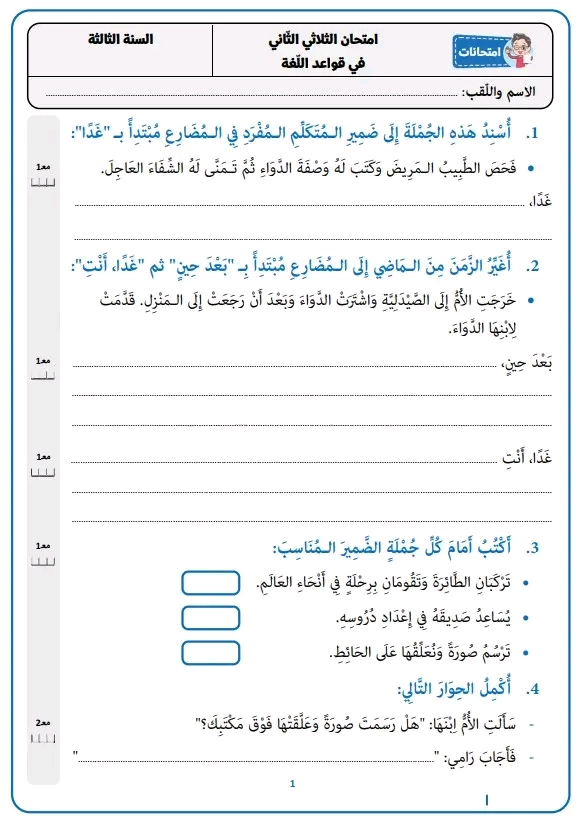 امتحانات
امتحان الثلاثي الثّاني
في قواعد اللّغة
السنة الثالثة
الاسم واللّقب:
1. أُسْنِدُ هَذِهِ الجُمْلَةَ إِلَى ضَمِيرِ الـمُتَكَلِّمِ الـمُفْرَدِ فِي الـمُضَارِعِ مُبْتَدِأً بـ "غَدًا":
• فَحَصَ الطَّبِيبُ الـمَرِيضَ وَكَتَبَ لَهُ وَصْفَةَ الدَّوَاءِ ثُمَّ تَـمَنَّى لَهُ الشِّفَاءَ العَاجِلَ.
مع1
غَدًا،
2. أُغَيِّرُ الزَّمَنَ مِنَ الـمَاضِي إِلَى الـمُضَارِعِ مُبْتَدِأً بـِ "بَعْدَ حِينٍ" ثم "غَدًا، أَنْتِ":
• خَرَجَتِ الأُمُّ إِلَى الصَّيْدَلِيَّةِ وَاشْتَرَتْ الدَّوَاءَ وَبَعْدَ أَنْ رَجَعَتْ إِلَى الـمَنْزِلِ. قَدَّمَتْ
لِابْنِهَا الدَّوَاءَ.
مع1
بَعْدَ حِينٍ،
مع1
غَدًا، أَنْتِ
3. أَكْتُبُ أَمَامَ كُلِّ جُمْلَةٍ الضَّمِيرَ الـمُنَاسِبَ:
مع1
• تَرْكَبَانِ الطَّائِرَةَ وَتَقُومَانِ بِرِحْلَةٍ فِي أَنْحَاءِ العَالَمِ.
• يُسَاعِدُ صَدِيقَهُ فِي إِعْدَادِ دُرُوسِهِ.
• تَرْسُمُ صُورَةً وَتُعَلِّقُهَا عَلَى الحَائِطِ.
4. أُكْمِلُ الحِوَارَ التَّالِي:
- سَأَلَتِ الأُمُّ ابْنَهَا: "هَلْ رَسَمَتَ صُورَةً وَعَلَّقْتَهَا فَوْقَ مَكْتَبِكَ؟"
مع2
- فَأَجَابَ رَامِي: " "
1